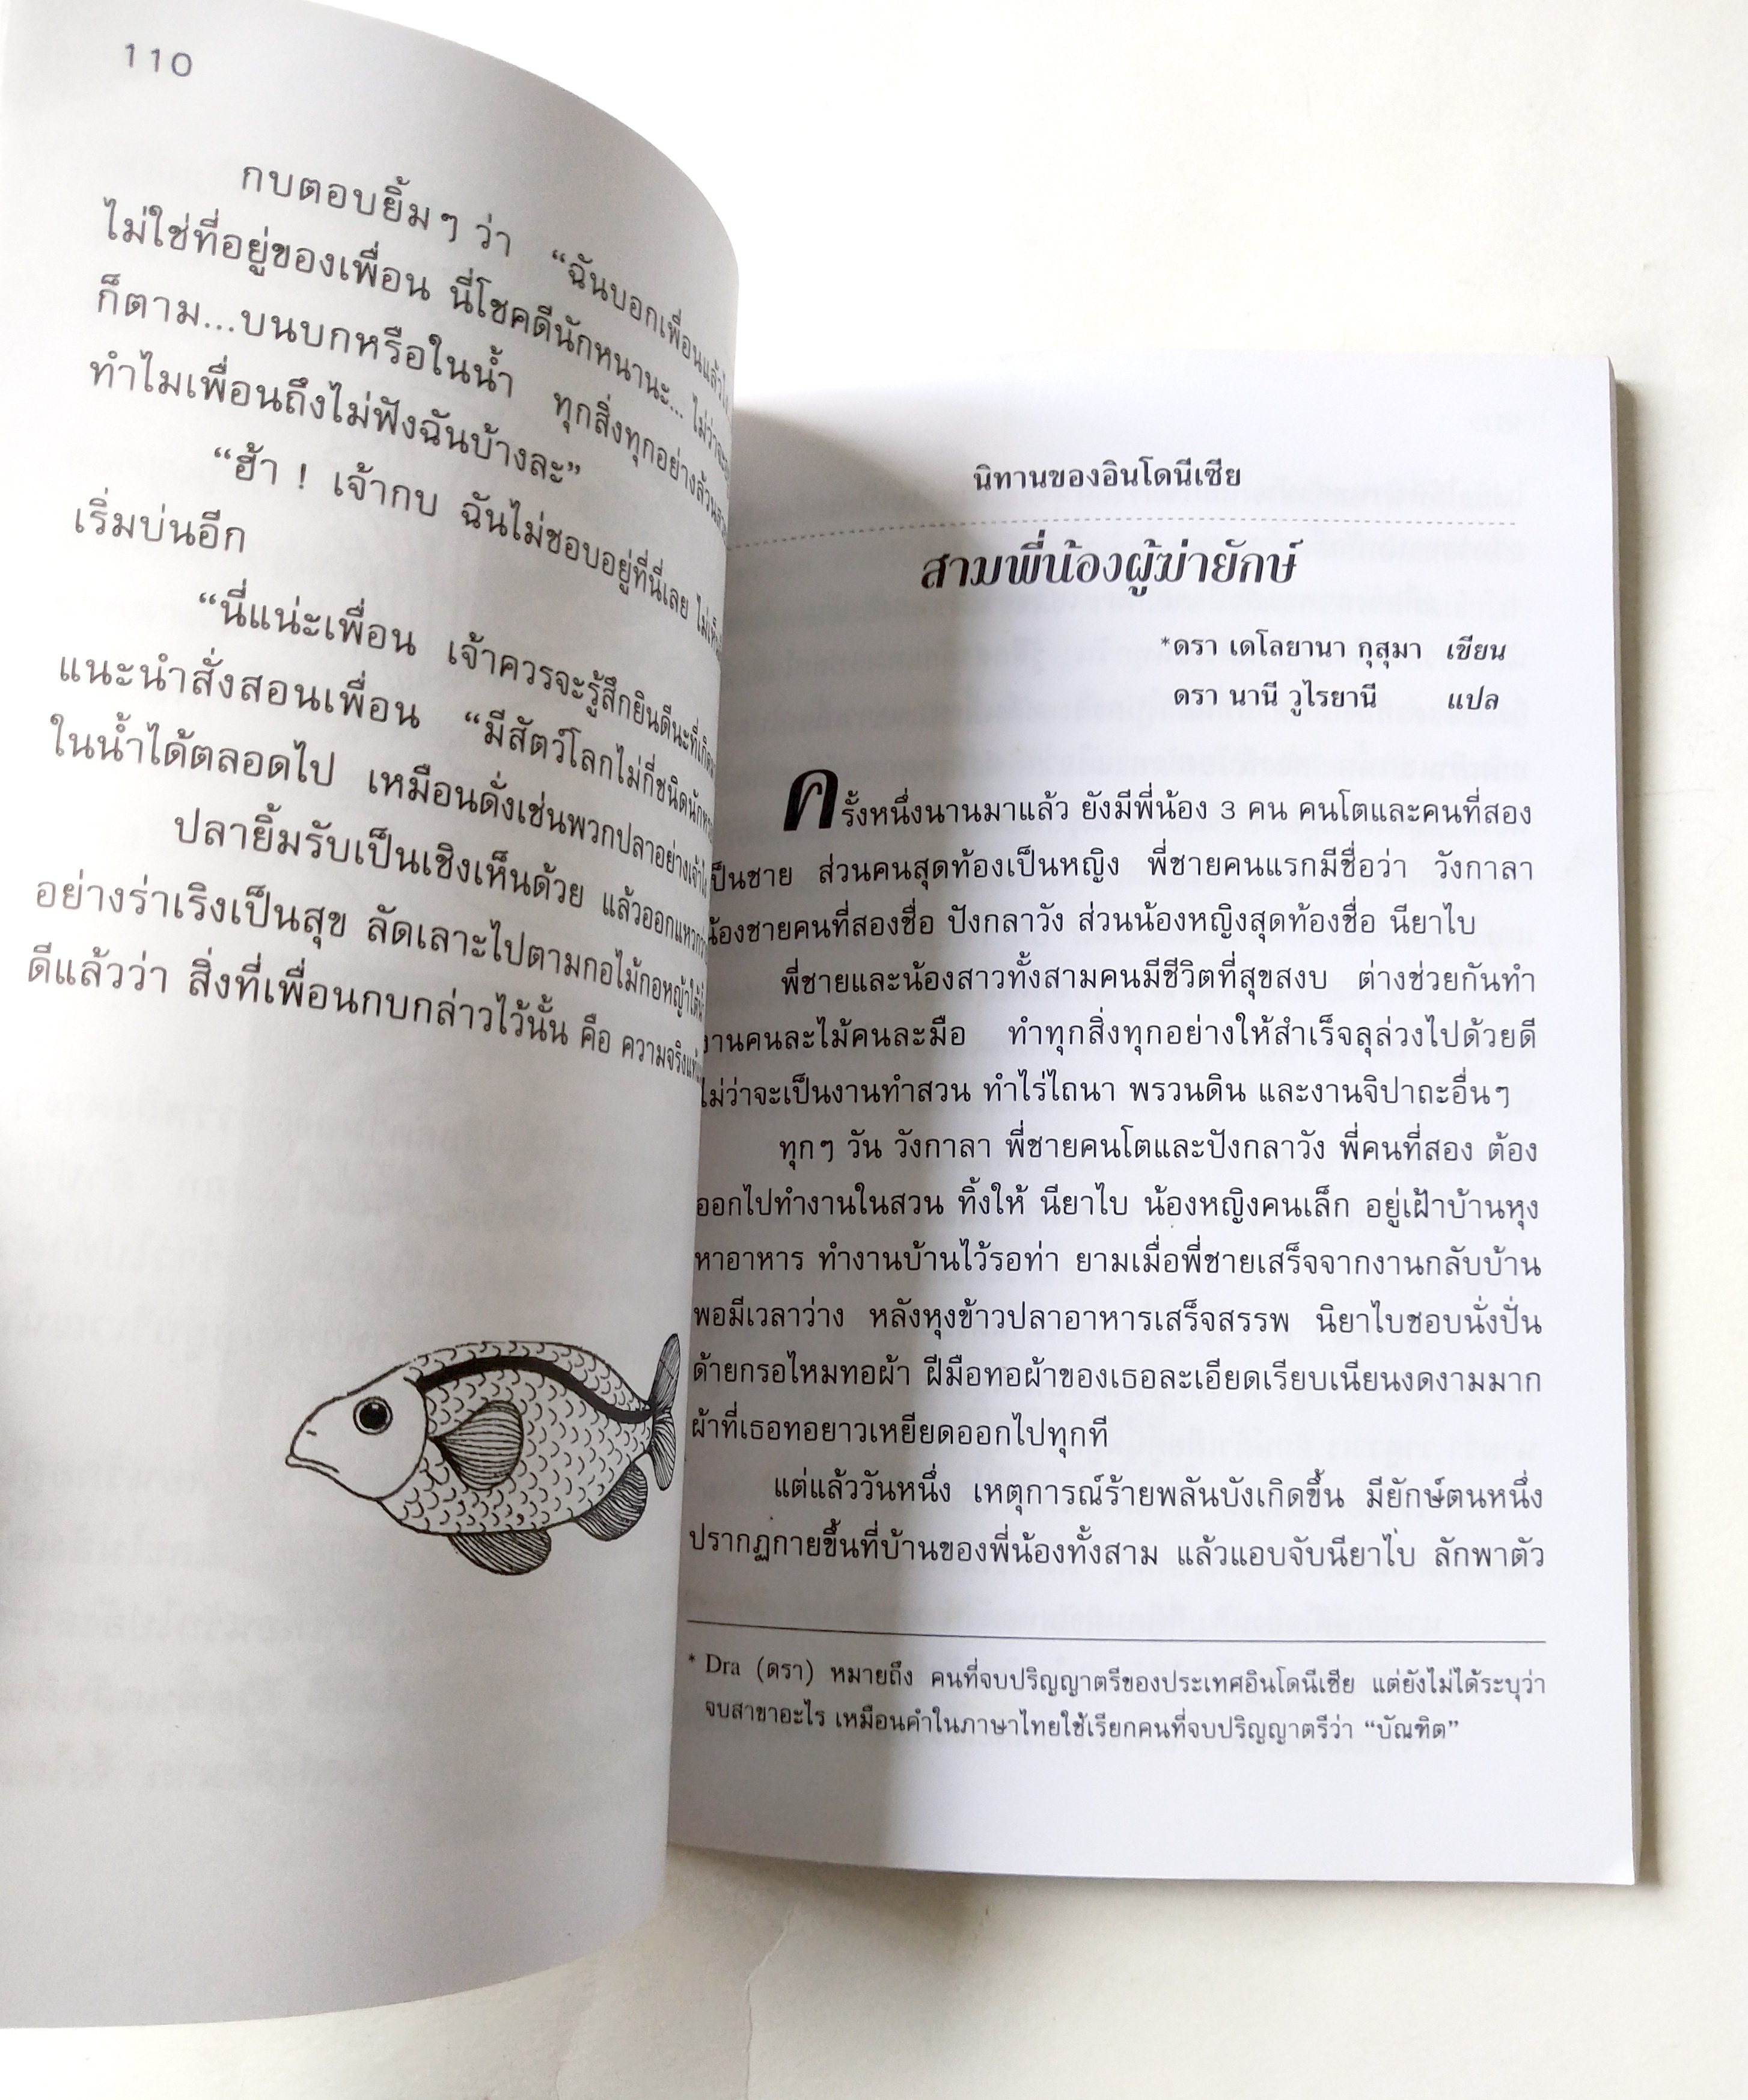 110
กบตอบยิ้มๆ ว่า "ฉันบอกเพื่อนแล้วไง
ไม่ใช่ที่อยู่ของเพื่อน นี่โชคดีนักหนานะ... ไม่ว่าจะอยู่
ก็ตาม...บนบกหรือในน้ำ ทุกสิ่งทุกอย่างล้วน
ทำไมเพื่อนถึงไม่ฟังฉันบ้างละ"
"ฮ้า ! เจ้ากบ ฉันไม่ชอบอยู่ที่นี่เลย
เริ่มบ่นอีก
"นี่แน่ะเพื่อน เจ้าควรจะรู้สึกยินดีนะที่เกิด
แนะนำสั่งสอนเพื่อน "มีสัตว์โลกไม่กี่ชนิดนัก
ในน้ำได้ตลอดไป เหมือนดั่งเช่นพวกปลาอย่างเจ้าไง
ปลายิ้มรับเป็นเชิงเห็นด้วย แล้วออกแหวก
อย่างร่าเริงเป็นสุข ลัดเลาะไปตามกอไม้กอหญ้าใต้
ดีแล้วว่า สิ่งที่เพื่อนกบกล่าวไว้นั้น คือ ความจริง
นิทานของอินโดนีเซีย
สามพี่น้องผู้ฆ่ายักษ์
*ดรา เดโลยานา กุสุมา เขียน
ดรา นานี วูไรยานี แปล
ครั้งหนึ่งนานมาแล้ว ยังมีพี่น้อง 3 คน คนโตและคนที่สอง
เป็นชาย ส่วนคนสุดท้องเป็นหญิง พี่ชายคนแรกมีชื่อว่า วังกาลา
น้องชายคนที่สองชื่อ ปังกลาวัง ส่วนน้องหญิงสุดท้องชื่อ นียาไบ
พี่ชายและน้องสาวทั้งสามคนมีชีวิตที่สุขสงบ ต่างช่วยกันทำ
งานคนละไม้คนละมือ ทำทุกสิ่งทุกอย่างให้สำเร็จลุล่วงไปด้วยดี
ไม่ว่าจะเป็นงานทำสวน ทำไร่ไถนา พรวนดิน และงานจิปาถะอื่นๆ
ทุกๆ วัน วังกาลา พี่ชายคนโตและปังกลาวัง พี่คนที่สอง ต้อง
ออกไปทำงานในสวน ทิ้งให้ นียาไบ น้องหญิงคนเล็ก อยู่เฝ้าบ้านหุง
หาอาหาร ทำงานบ้านไว้รอท่า ยามเมื่อพี่ชายเสร็จจากงานกลับบ้าน
พอมีเวลาว่าง หลังหุงข้าวปลาอาหารเสร็จสรรพ นิยาไบชอบนั่งปั่น
ด้ายกรอไหมทอผ้า ฝีมือทอผ้าของเธอละเอียดเรียบเนียนงดงามมาก
ผ้าที่เธอทอยาวเหยียดออกไปทุกที
แต่แล้ววันหนึ่ง เหตุการณ์ร้ายพลันบังเกิดขึ้น มียักษ์ตนหนึ่ง
ปรากฏกายขึ้นที่บ้านของพี่น้องทั้งสาม แล้วแอบจับนียาไบ ลักพาตัว
* Dra (ดรา) หมายถึง คนที่จบปริญญาตรีของประเทศอินโดนีเซีย แต่ยังไม่ได้ระบุว่า
จบสาขาอะไร เหมือนคำในภาษาไทยใช้เรียกคนที่จบปริญญาตรีว่า "บัณฑิต"